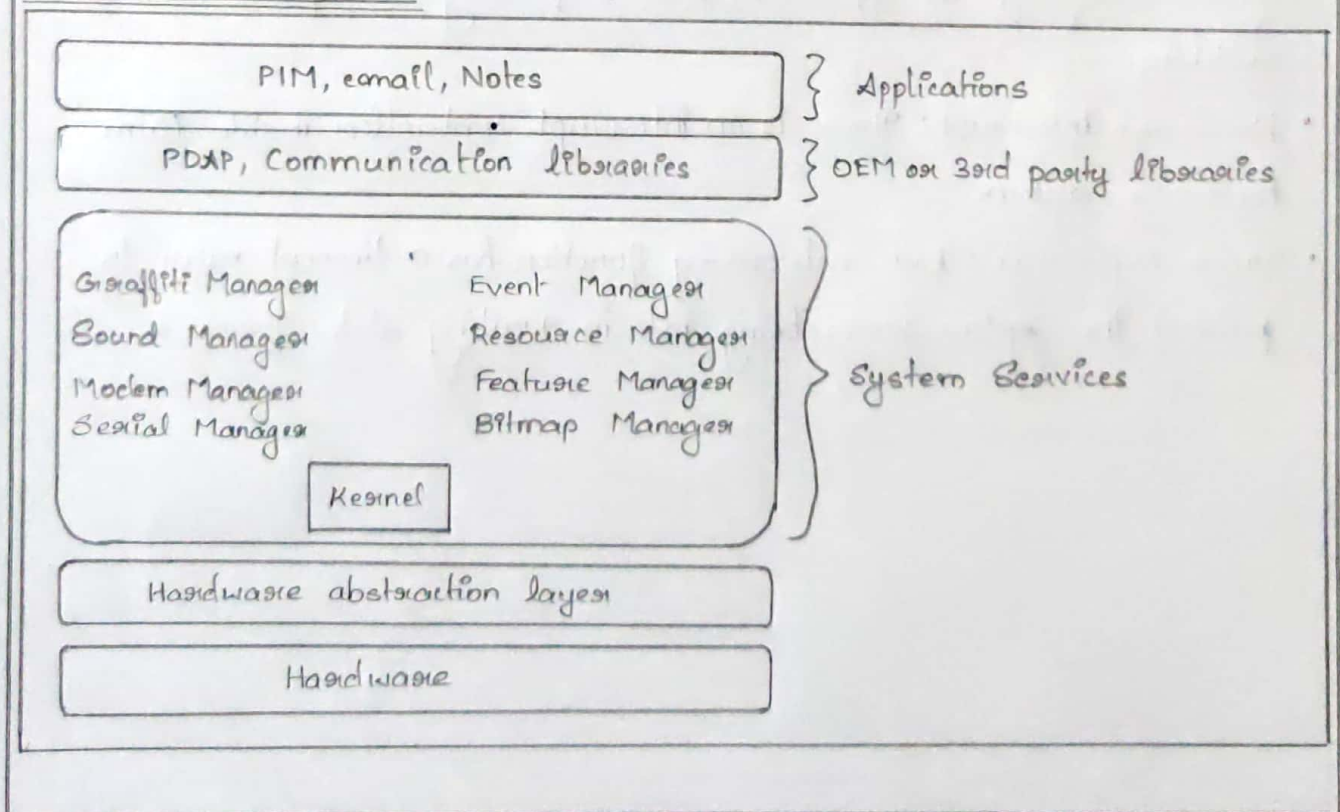 PIM, eamail, Notes
Applications
PDAP, Communication libraries
OEM or 3rd party libraries
Graffiti Manager
Event Manager
Sound Manager
Resource Manager
Modem Manager
Feature Manager
Serial Manager
Bitmap Manager
System Services
Kernel
Hardware abstraction layer
Hardware